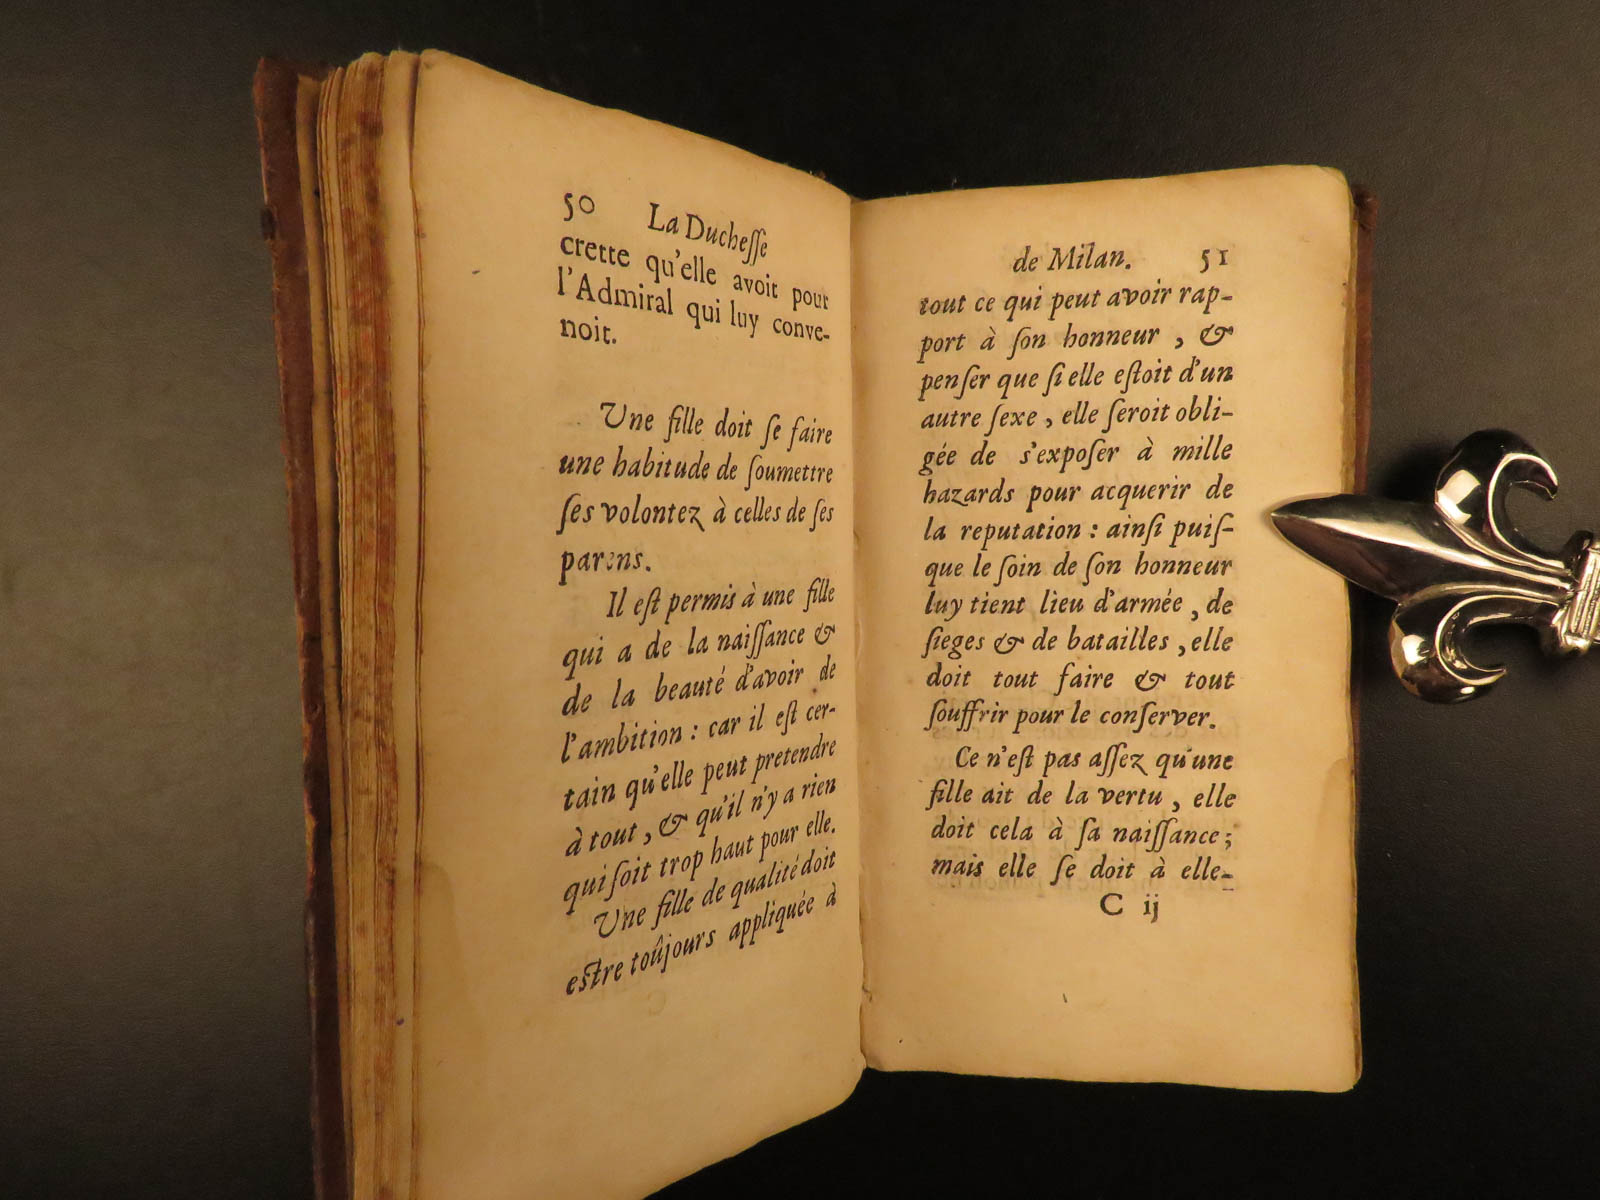 50 La Duchesse
crette qu'elle avoit pour
l'Admiral qui luy conve-
noit.
Une fille doit se faire
une habitude de ſoumettre
ſes volontez à celles de ſes
parens.
Il eſt permis à une fille
qui a de la naiſſance &
de la beauté d'avoir de
l'ambition : car il eſt cer-
tain qu'elle peut pretendre
à tout, & qu'il n'y a rien
qui ſoit trop haut pour elle.
Une fille de qualité doit
eſtre toûjours appliquée à
de Milan. 51
tout ce qui peut avoir rap-
port à ſon honneur, &
penſer que ſi elle eſtoit d'un
autre ſexe, elle ſeroit obli-
gée de s'expoſer à mille
hazards pour acquerir de
la reputation : ainſi puiſ-
que le ſoin de ſon honneur
luy tient lieu d'armée, de
ſieges & de batailles, elle
doit tout faire & tout
ſouffrir pour le conſerver.
Ce n'eſt pas aſſez qu'une
fille ait de la vertu, elle
doit cela à ſa naiſſance;
mais elle ſe doit à elle-
C ij